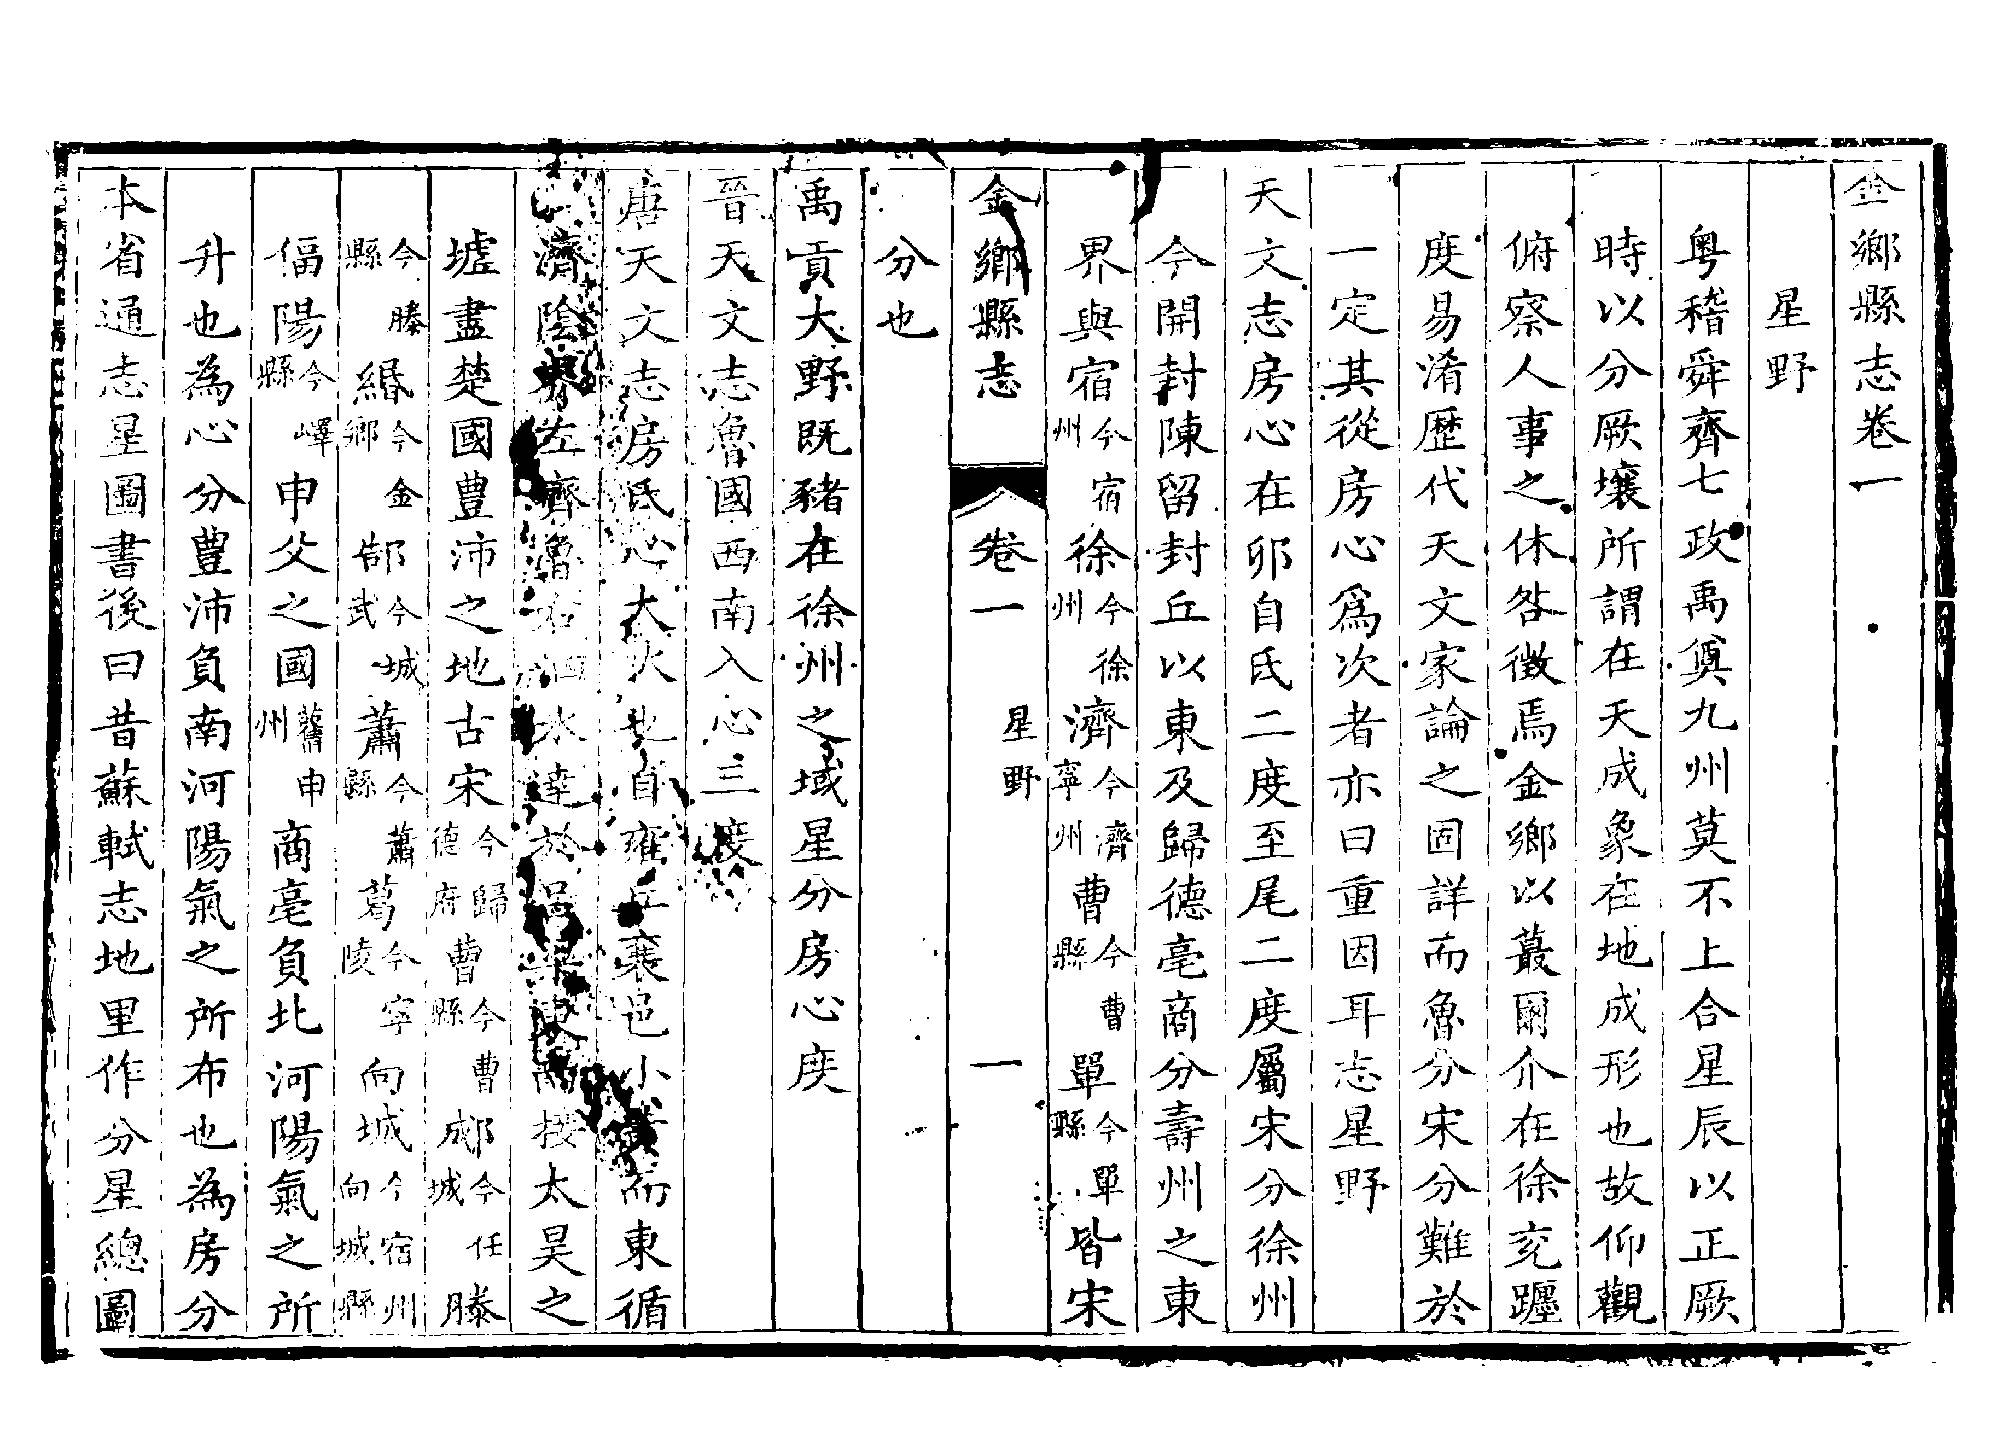 金鄉縣志卷一
星野
粤稽舜齊七政禹奠九州莫不上合星辰以正厥
時以分厥壤所謂在天成象在地成形也故仰觀
俯察人事之休咎徵焉金鄉以蕞爾介在徐兖躔
度易淆歷代天文家論之固詳而魯分宋分難於
一定其從房心爲次者亦曰重因耳志星野
天文志房心在卯自氐二度至尾二度屬宋分徐州
今開封陳留封丘以東及歸德亳商分壽州之東
界與宿今宿州徐今徐州濟今濟寧州曹今曹縣單今單縣皆宋
金鄉縣志 卷一 星野 一
分也
禹貢大野既豬在徐州之域星分房心度
晉天文志魯國西南入心三度
唐天文志房氐心大火也自雍丘襄邑小黃而東循
濟陰界左齊魯右泗水達於呂梁東南接太昊之
墟盡楚國豊沛之地古宋今歸德府曹今曹縣郕今任城滕
今滕縣緡今金鄉郜今城武蕭今蕭縣葛今寧陵向城今宿州向城縣
偪陽今嶧縣申父之國舊申州商亳負北河陽氣之所
升也為心分豊沛負南河陽氣之所布也為房分
本省通志星圖書後曰昔蘇軾志地里作分星總圖